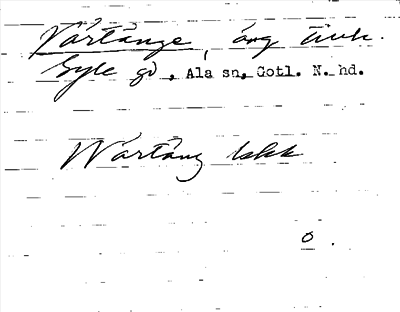 Vårtänge, äng
Gyle gd, Ala sn, Gotl. N. hd.
Wårtäng lskk
o.